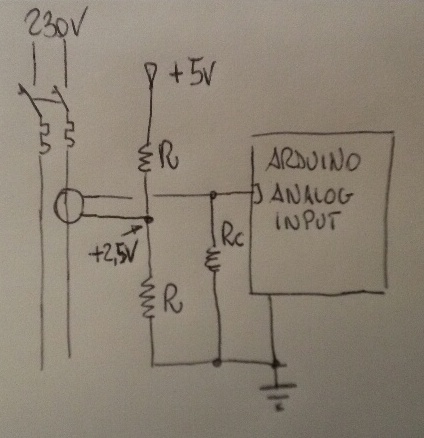 230V
+5V
R
ARDUINO
ANALOG
INPUT
+2,5V
Rc
R